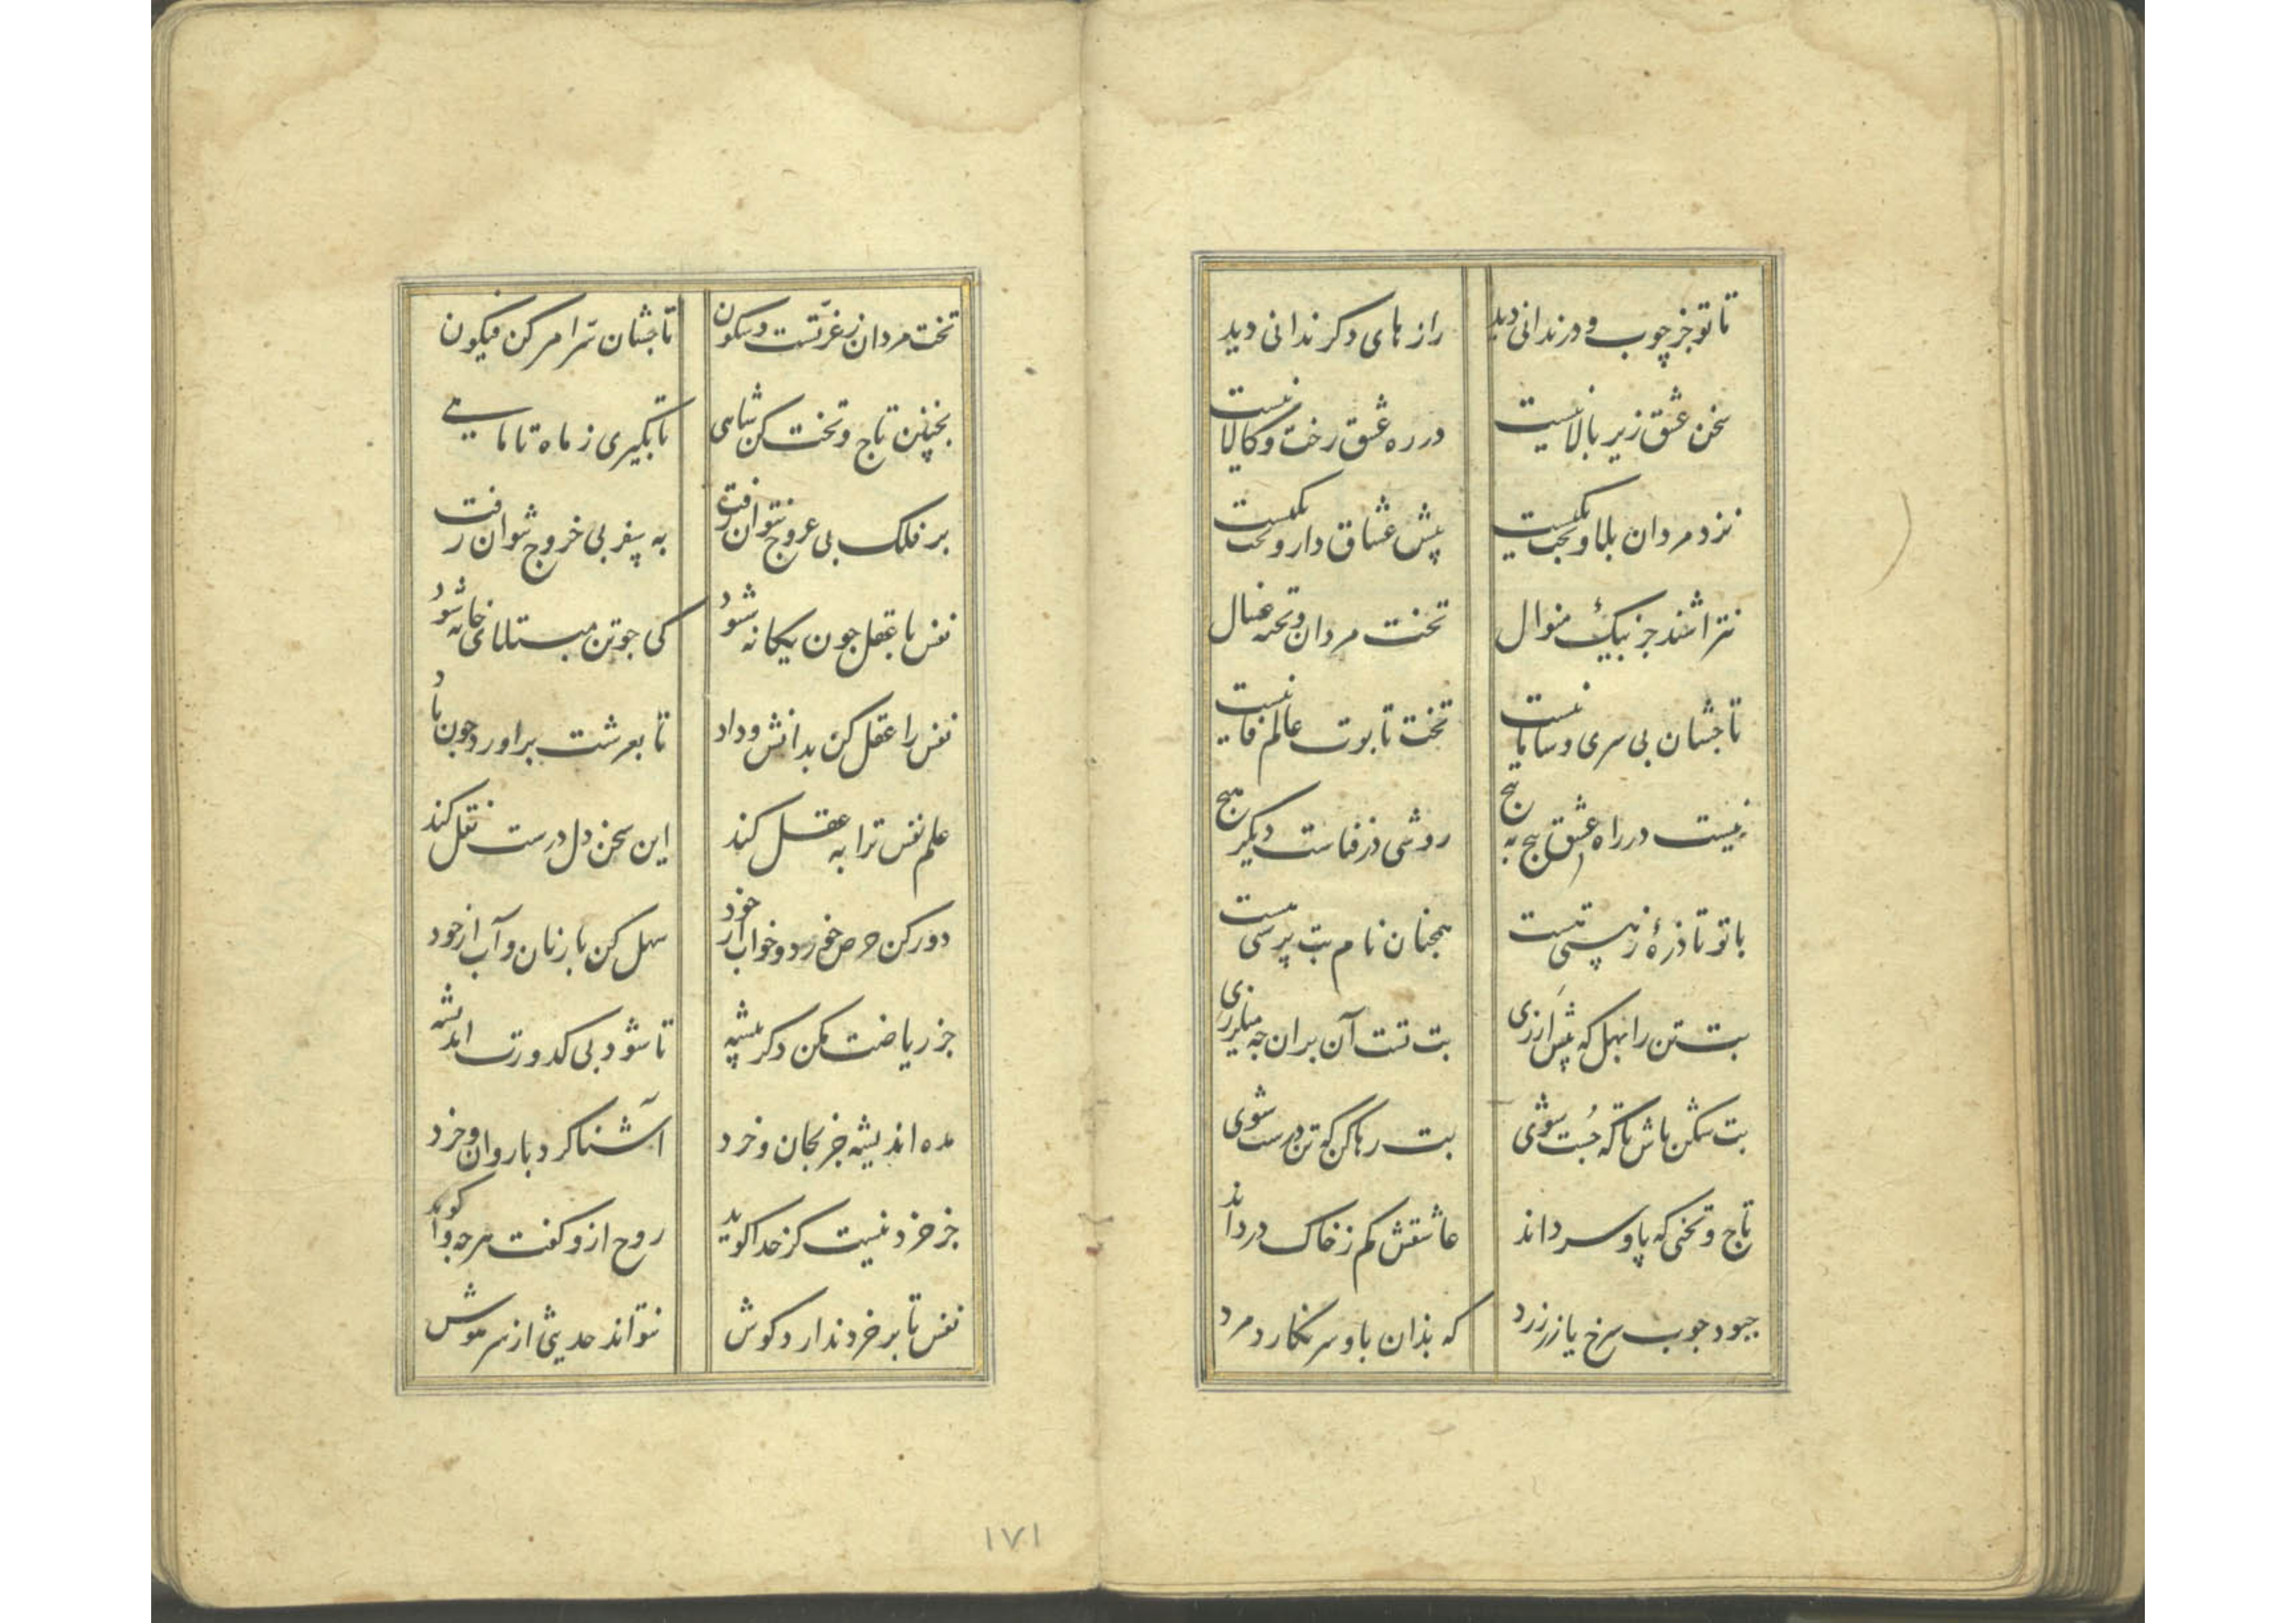 تا تو جز چوب و در ندانی دید
راز های دکر ندانی دید
سخن عشق زیر بالا نیست
در ره عشق رخت و کالا نیست
نزد مردان بلا و یکیست
پیش عشاق دار و تخت یکیست
نتراشند جز بیک منوال
تخت مردان و تخته غسال
تاجشان بی سری و سامانیست
تخت تابوت عالم فانیست
نیست در راه عشق هیچ به هیچ
روشی در فناست دیگر هیچ
با تو تا ذرهٔ ز هستی هست
همچنان نام بت پرستی هست
بت تن را بهل که بیش ارزی
بت تست آن بران چه میلرزی
بت شکن باش تا که جُست شوی
بت رها کن که تن درست شوی
تاج و تختی که پا و سر داند
عاشقش کم ز خاک در داند
چبود چوب سرخ یا زر زرد
که بذان پا و سر نکارد مرد
تخت مردان ز عزّتست و سکون
تاجشان سرّ امر کن فیکون
بچنین تاج و تخت کن شاهی
تا بکیری ز ماه تا ماهی
بر فلک بی عروج نتوان رفت
به سفر بی خروج نتوان رفت
نفس با عقل جون یکانه شود
کی جو تن مبتلای خانه شود
نفس را عقل کن بدانش و داد
تا بعرشت براورد جون باد
علم نفس ترا به عقل کند
این سخن دل درست نقل کند
دور کن حرص خورد و خواب از خود
سهل کن بار نان و آب از خود
جز ریاضت مکن دکر پیشه
تا شود بی کدورت اندیشه
مده اندیشه جز بجان و خرد
آشنا کرد با روان و خرد
جز خرد نیست کز خدا کوید
روح ازو کفت هرجه وا کوید
نفس تا بر خرد ندارد کوش
نتواند حدیثی از سر هوش
۱۷۱